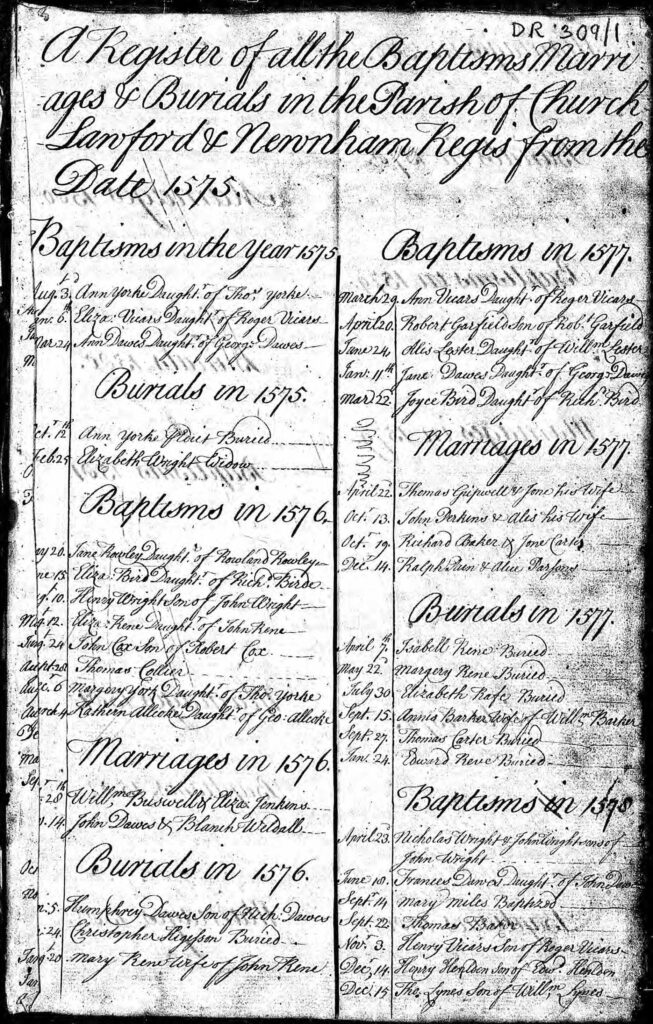 DR 309/1
A Register of all the Baptisms Marri
ages & Burials in the Parish of Church
Lawford & Newnham Regis from the
Date 1575.
Baptisms in the Year 1575
Aug. 3 Ann Yorke Daught.r of Tho.s Yorke
6th Eliza. Vicars Daught.r of Roger Vicars
Mar. 24 Ann Dawes Daught.r of Georg.e Dawes
Burials in 1575.
Oct.r 12th Ann Yorke Buried
Feb. 25 Elizabeth Wright Widow
Baptisms in 1576
20. Jane Rowley Daught.r of Rowland Rowley
15. Eliza. Bird Daught.r of Rich.d Birde
10. Henry Wright Son of John Wright
12. Eliza. Kene Daught.r of John Kene
24 John Cox Son of Robert Cox
28 Thomas Collier
6 Margery York Daught.r of Tho.s Yorke
March 4 Kathern Allecke Daught.r of Geo. Allecke
Marriages in 1576.
28 Will.m Buswell & Eliza Jenkins
14. John Dawes & Blanch Weldall
Burials in 1576.
5. Humphrey Dawes Son of Rich. Dawes
24. Christopher Buried
20 Mary Kene Wife of John Kene
Baptisms in 1577.
March 29. Ann Vicars Daught.r of Roger Vicars
April 20. Robert Garfield Son of Rob.t Garfield
June 24, Alis Lester Daught.r of Will.m Lester
Jan. 11th Jane Dawes Daught.r of Georg.e Dawes
Mar. 22 Joyce Bird Daught.r of Rich. Bird
Marriages in 1577.
April 22. Thomas & Jone his Wife
Oct. 13. John Perkins & Alis his Wife
Oct.r 19. Richard Baker & Jone Carter
Dec. 14. Ralph & Alice Parsons
Burials in 1577.
April 7th Isabell Kene Buried
May 22 Margery Kene Buried
July 30 Elizabeth Buried
Sept. 15. Annis Barker Wife of Will.m Barker
Sept. 27. Thomas Carter Buried
Jan. 24. Edward Buried
Baptisms in 1578
April 23. Nicholas Wright & John Wright sons of
John Wright
June 10. Frances Dawes Daught.r of John Dawes
Sept. 14 Mary Miles Baptized
Sept. 22 Thomas
Nov. 3 Henry Vicars Son of Roger Vicars
Dec. 14. Henry Hendon Son of Edw.d Hendon
Dec. 15 Tho. Lynes Son of Will.m Lynes